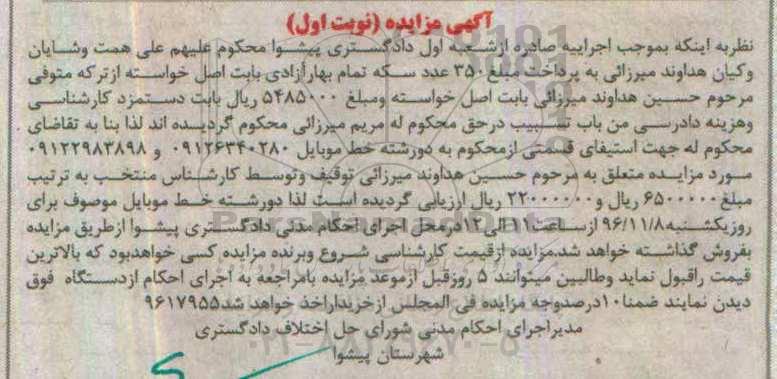 آگهی مزایده (نوبت اول)
نظربه اینکه بموجب اجراییه صادره ازشعبه اول دادگستری پیشوا محکوم علیهم علی همت وشایان
وکیان هداوند میرزائی به پرداخت مبلغ ۳۵۰ عدد سکه تمام بهارآزادی بابت اصل خواسته ازترکه متوفی
مرحوم حسین هداوند میرزائی بابت اصل خواسته ومبلغ ۵۴۸۵۰۰۰ ریال بابت دستمزد کارشناسی
وهزینه دادرسی من باب تسبیب درحق محکوم له مریم میرزائی محکوم گردیده اند لذا بنا به تقاضای
محکوم له جهت استیفای قسمتی ازمحکوم به دورشته خط موبایل ۰۹۱۲۶۳۴۰۲۸۰ و ۰۹۱۲۲۹۸۳۸۹۸
مورد مزایده متعلق به مرحوم حسین هداوند میرزائی توقیف وتوسط کارشناس منتخب به ترتیب
مبلغ ۶۵۰۰۰۰۰ ریال و ۲۲۰۰۰۰۰۰ ریال ارزیابی گردیده است لذا دورشته خط موبایل موصوف برای
روزیکشنبه ۹۶/۱۱/۸ ازساعت ۱۱ الی ۱۲ درمحل اجرای احکام مدنی دادگستری پیشوا ازطریق مزایده
بفروش گذاشته خواهد شد.مزایده ازقیمت کارشناسی شروع وبرنده مزایده کسی خواهدبود که بالاترین
قیمت راقبول نماید وطالبین میتوانند ۵ روزقبل ازموعد مزایده بامراجعه به اجرای احکام ازدستگاه فوق
دیدن نمایند ضمنا ۱۰درصدوجه مزایده فی المجلس ازخریداراخذ خواهد شد۹۶۱۷۹۵۵
مدیراجرای احکام مدنی شورای حل اختلاف دادگستری
شهرستان پیشوا
ParsNamadData
۰۲۱-۸۸۳۴۹۶۷۰-۵